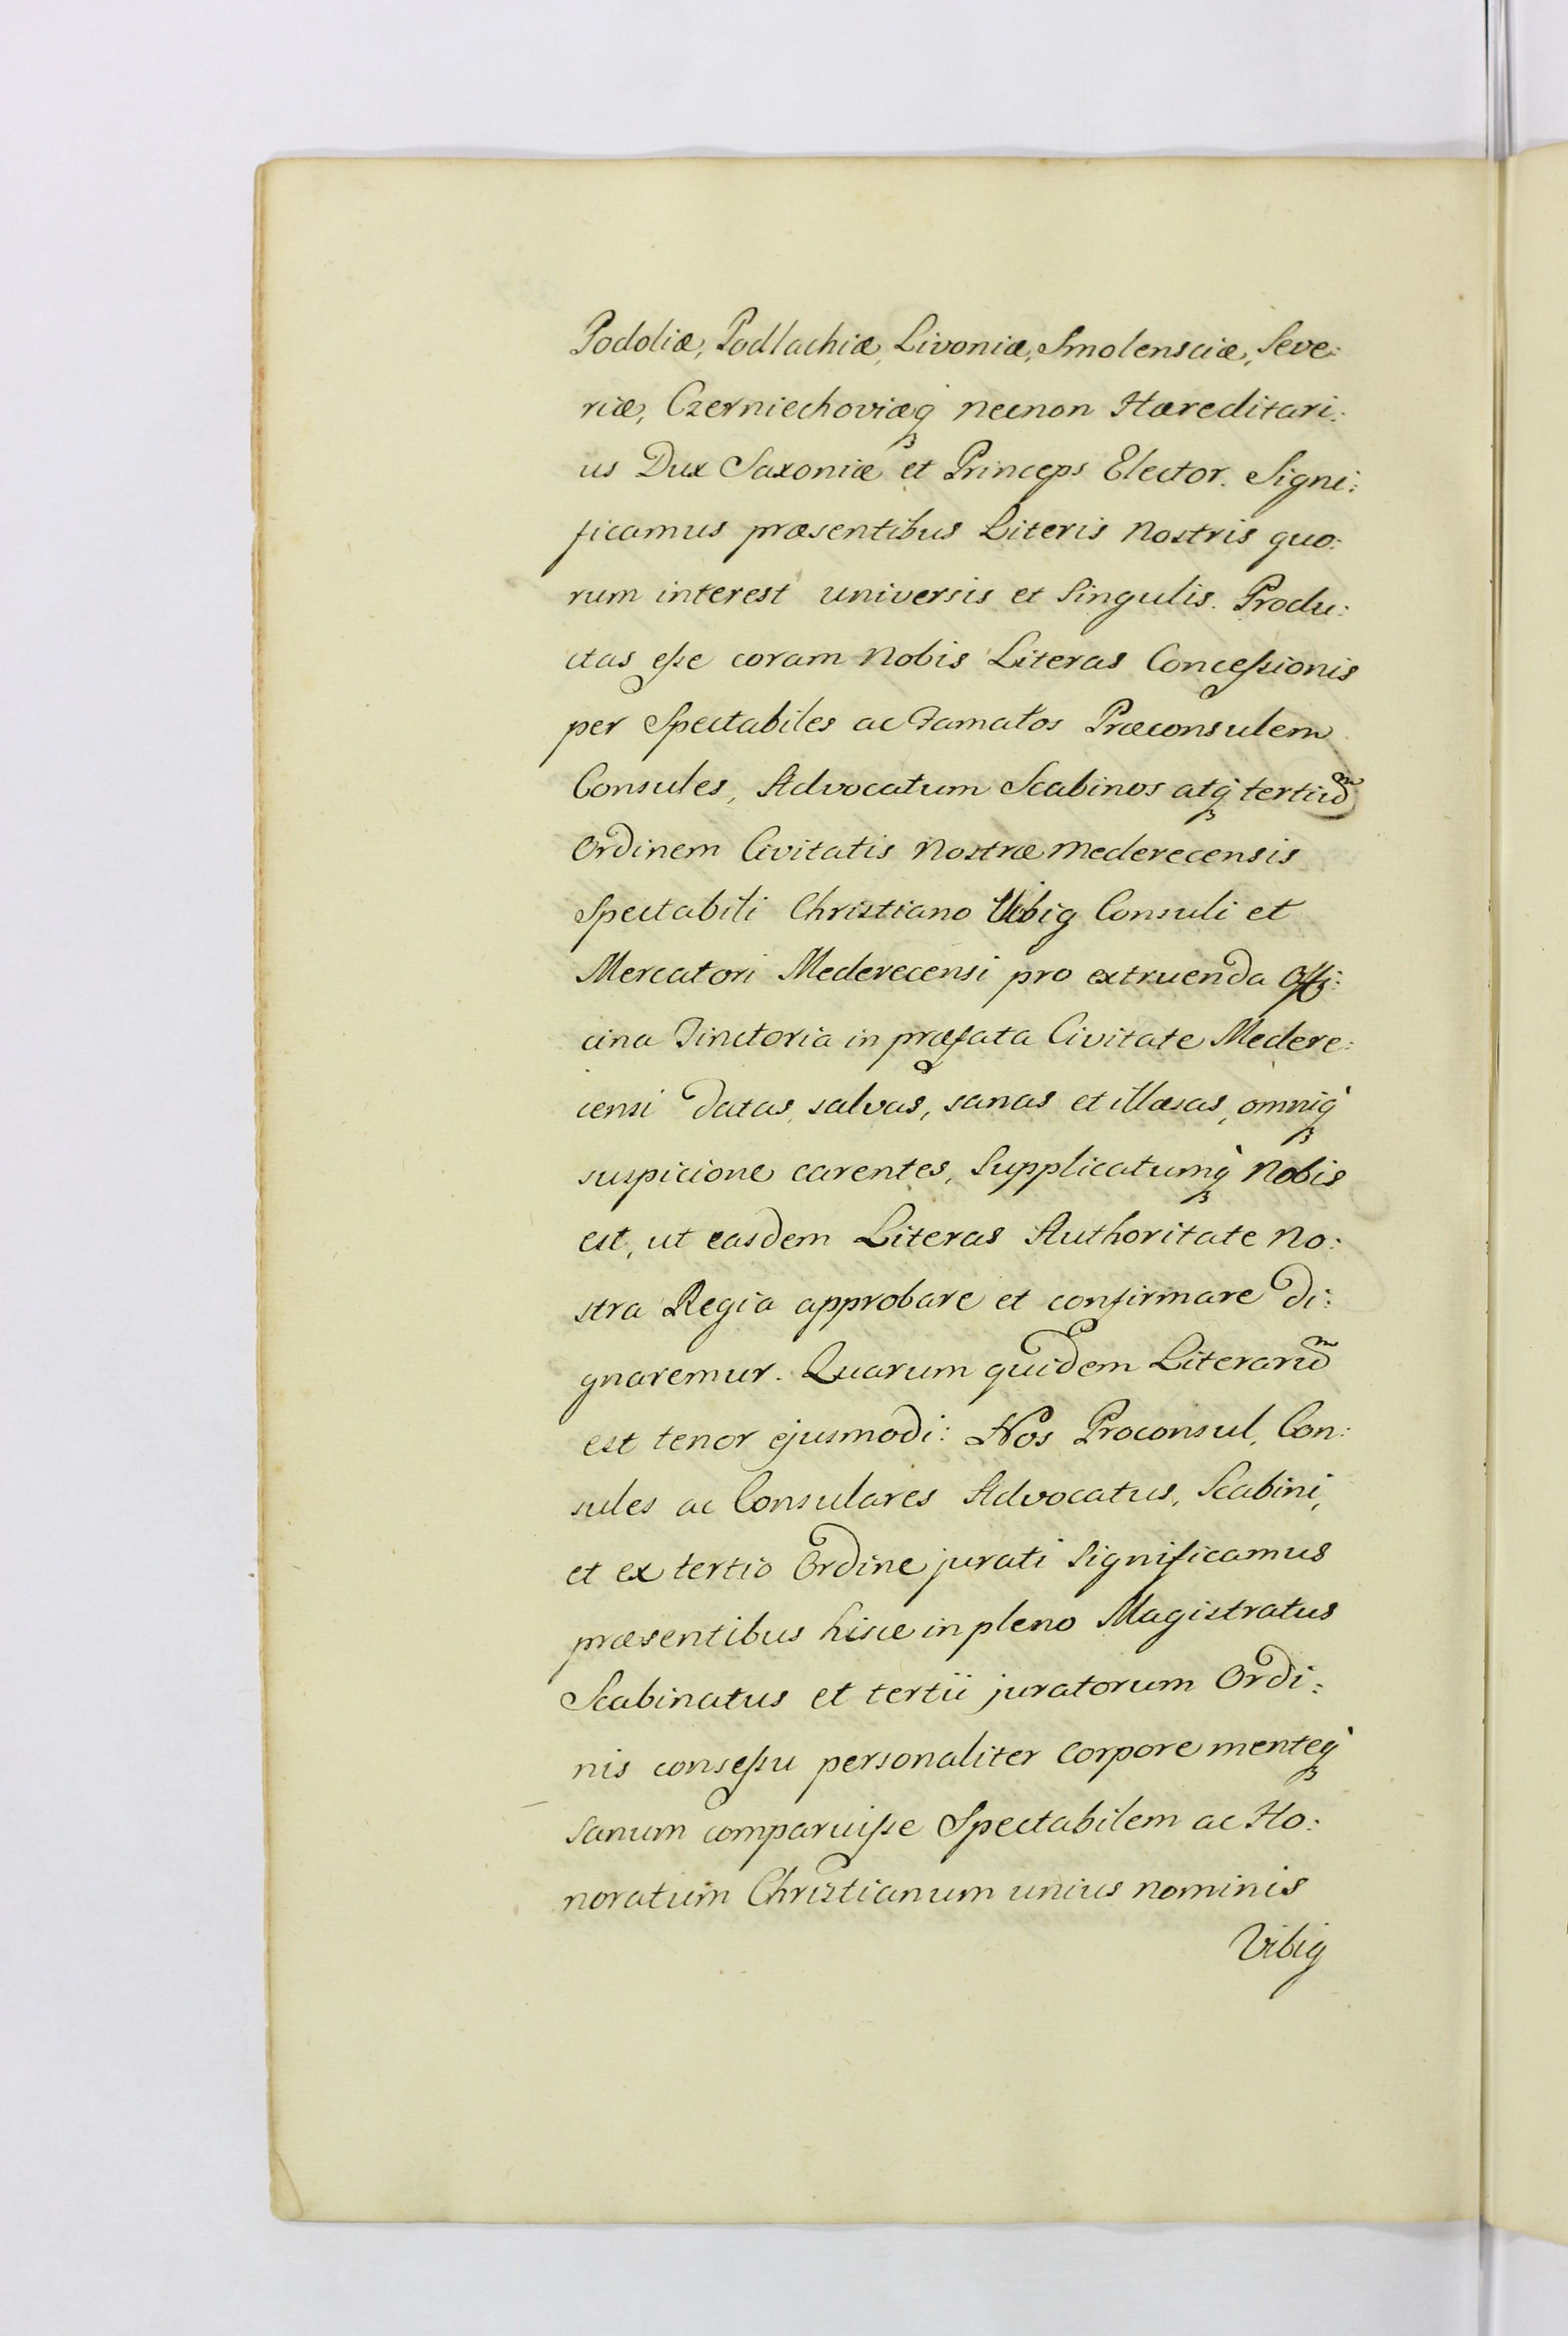 Podoliæ, Podlachiæ, Livoniæ, Smolensciæ, Seve:
riæ, Czerniechoviæqꝫ necnon Hæreditari:
us Dux Saxoniæ et Princeps Elector. Signi:
ficamus præsentibus Literis Nostris quo:
rum interest universis et Singulis. Produ:
ctas eſse coram Nobis Literas Conceſsionis
per Spectabiles ac Famatos Præconsulem
Consules, Advocatum Scabinos atqꝫ tertiu͠
Ordinem Civitatis Nostræ Mederecensis
Spectabili Christiano Vibig Consuli et
Mercatori Mederecensi pro extruenda Offi:
cina Tinctoria in præfata Civitate Medere:
censi datas, salvas, sanas et illæsas, omniqꝫ
suspicione carentes, Supplicatumqꝫ Nobis
est, ut easdem Literas Authoritate No:
stra Regia approbare et confirmare di:
gnaremur. Quarum quidem Literaru͠
est tenor ejusmodi: Nos Proconsul, Con:
sules ac Consulares Advocatus, Scabini,
et ex tertio Ordine jurati Significamus
præsentibus hisce in pleno Magistratus
Scabinatus et tertii juratorum Ordi:
nis conseſsu personaliter Corpore menteqꝫ
Sanum comparuiſse Spectabilem ac Ho:
noratum Christianum unius Nominis
Vibig